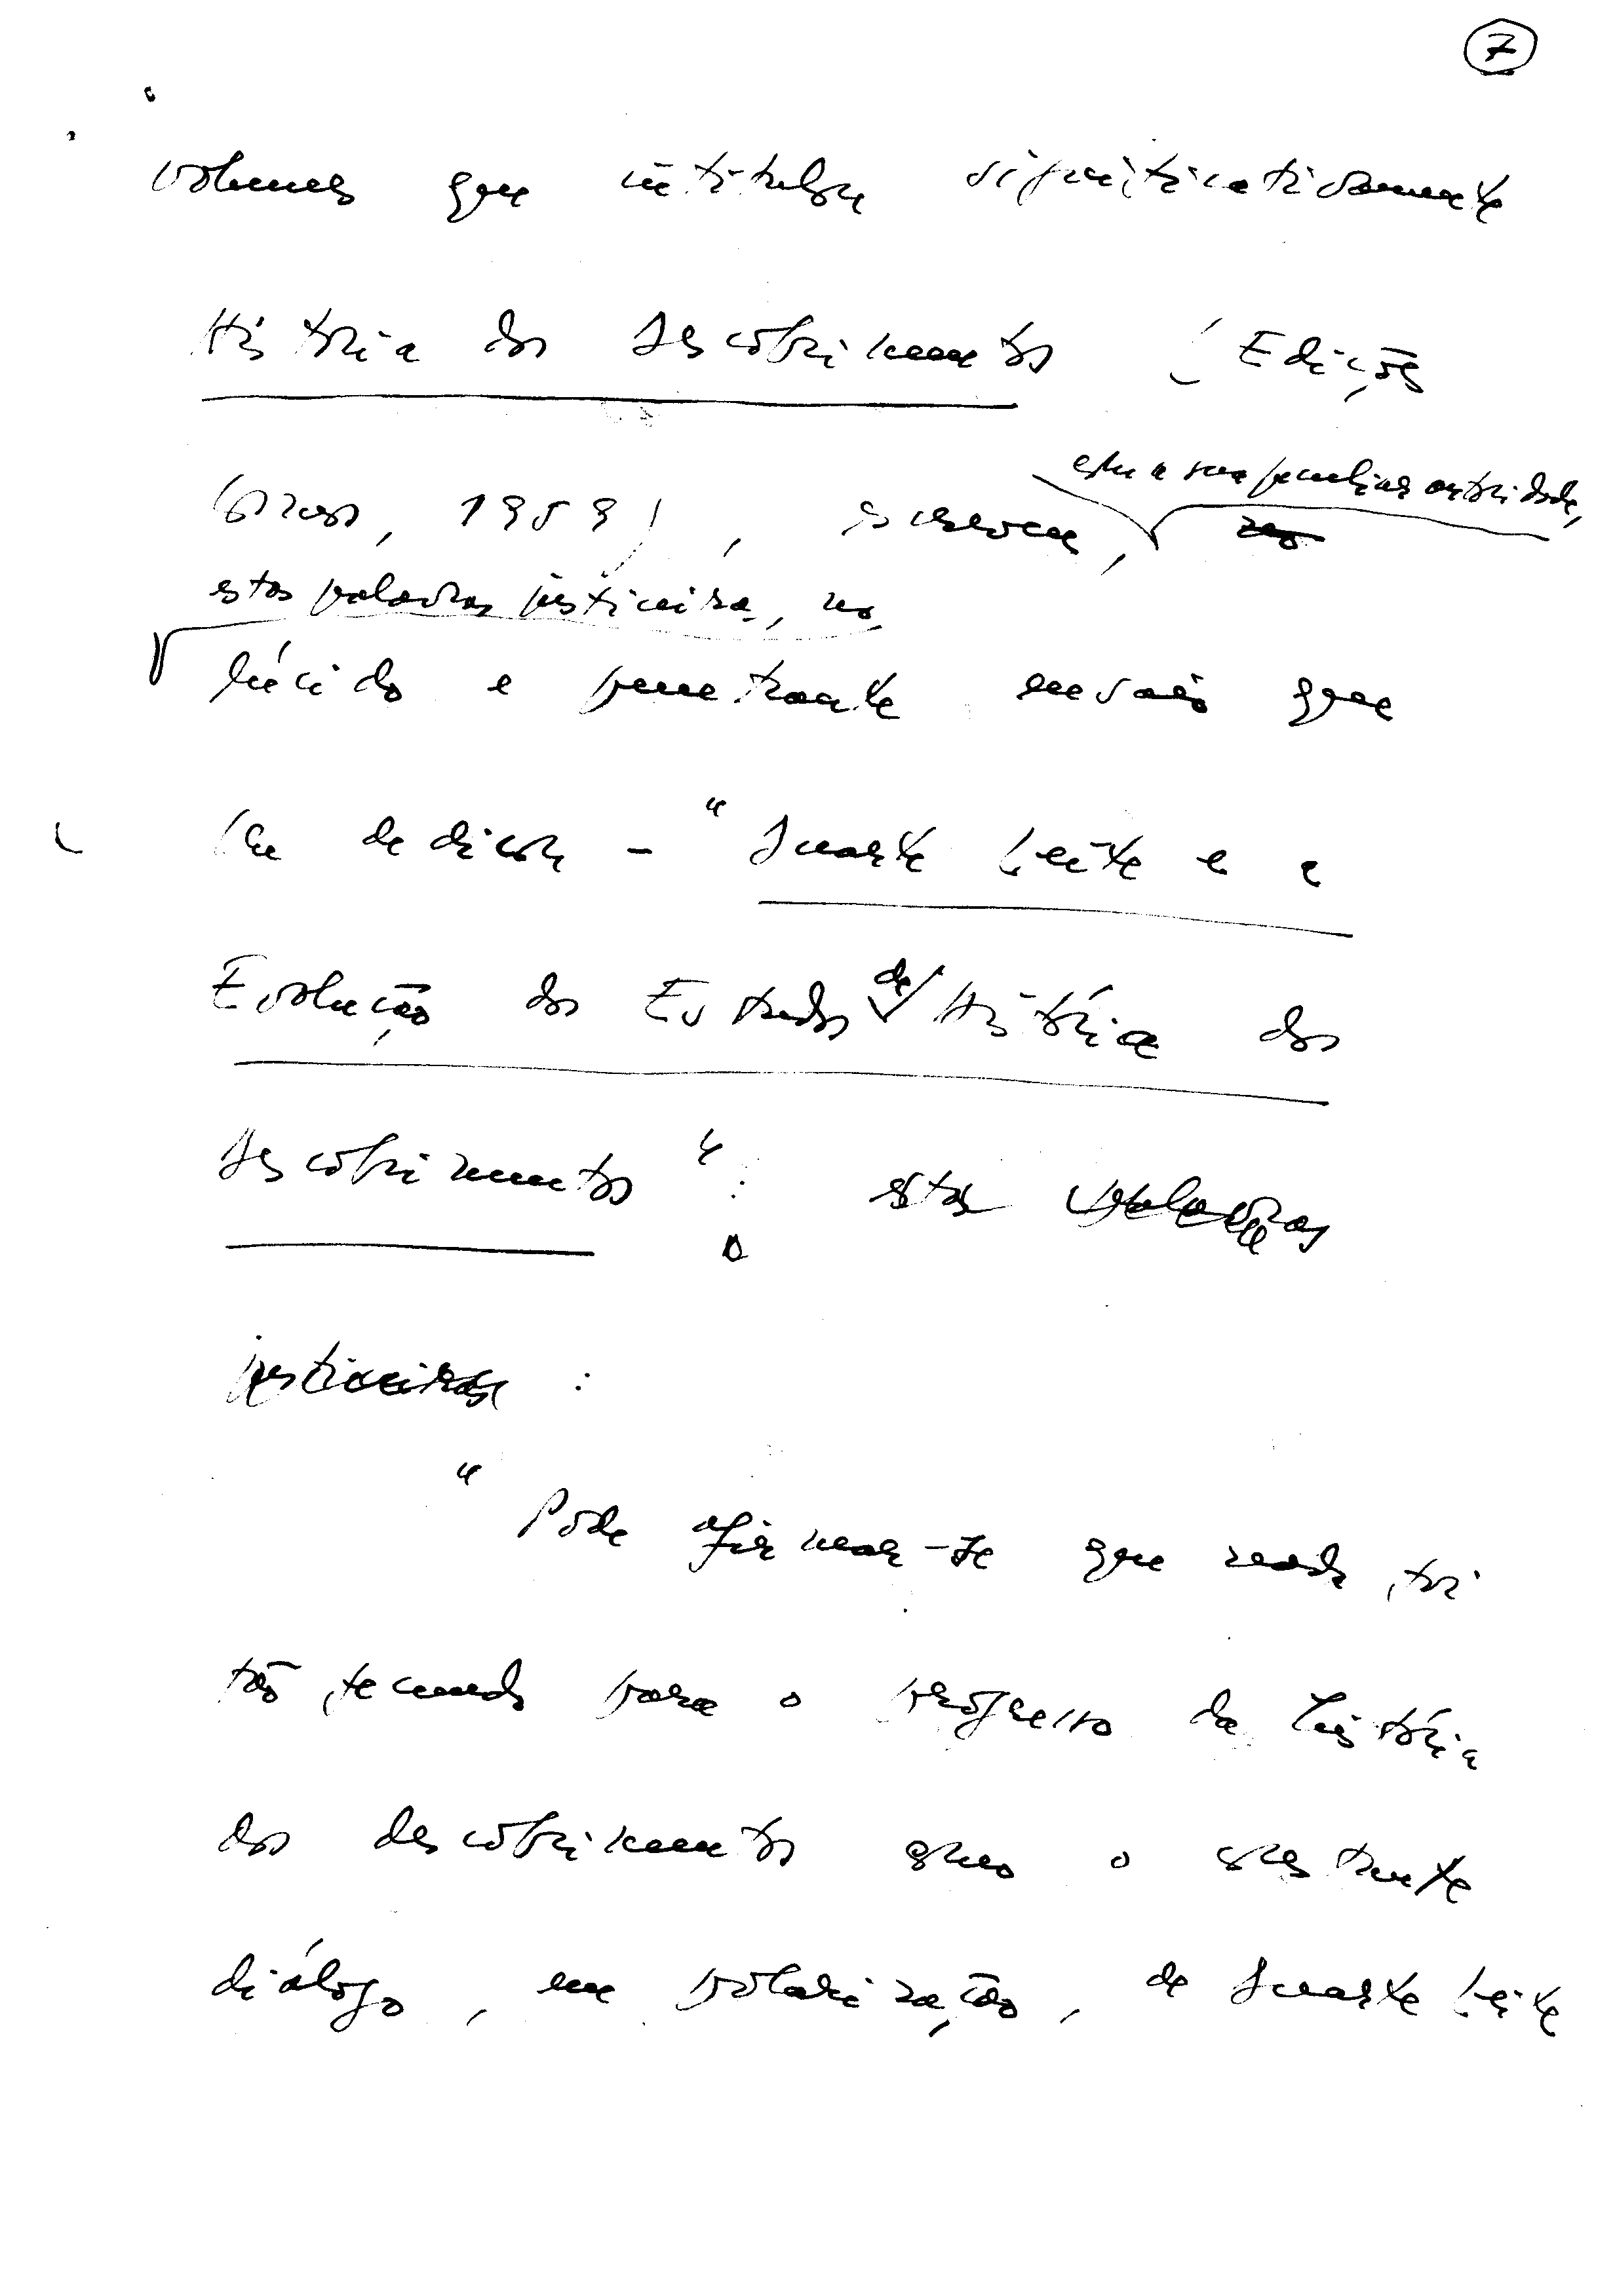 7
volumes que intitulou significativamente
História dos Descobrimentos (Edições
Cosmos, 1959), escreveu, com a sua peculiar autoridade, no
estas palavras justiceiras, no
lúcido e penetrante ensaio que
lhe dedicou – "Duarte Leite e a
Evolução dos Estudos de História dos
Descobrimentos": estas palavras
justiceiras:
"Pode afirmar-se que nada foi
tão fecundo para o progresso da história
dos descobrimentos como o constante
diálogo, em polarização, de Duarte Leite